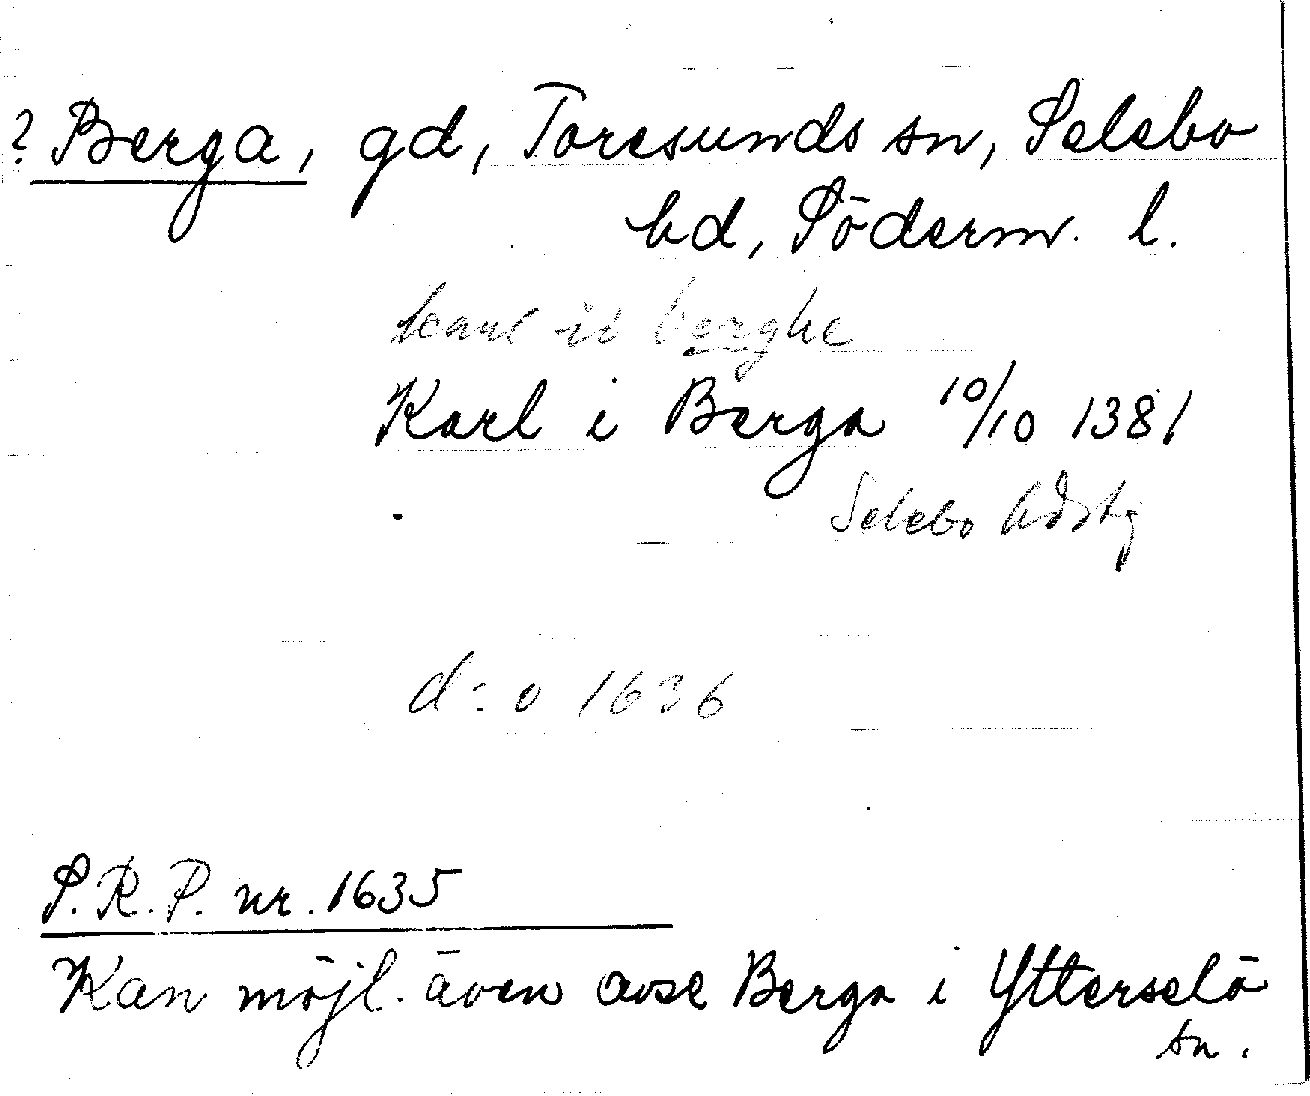 ? Berga, gd, Toresunds sn, Selebo
hd, Söderm. l.
karl ii berghe
Karl i Berga 10/10 1381
Selebo hdstg
d:o 1636
S.R.P. nr. 1635
Kan möjl. även avse Berga i Ytterselö
sn.